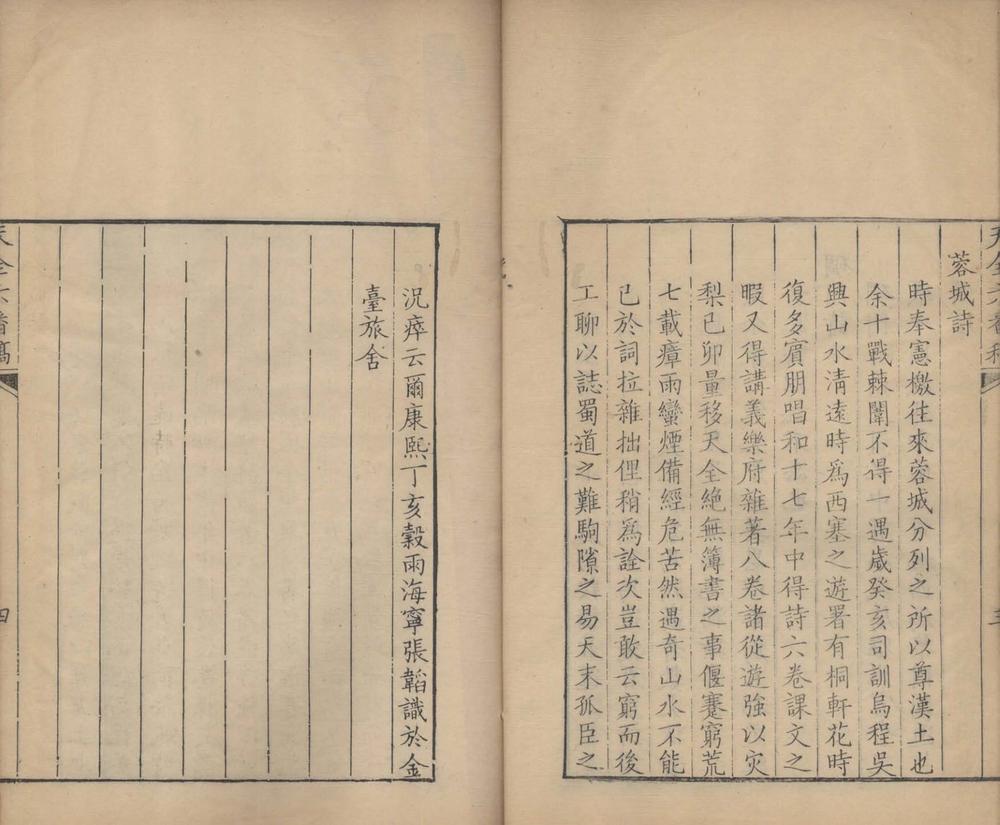 天全六番稿
三
蓉城詩
時奉憲檄往來蓉城分列之所以尊漢土也
余十戰棘闈不得一遇歲癸亥司訓烏程吳
興山水清遠時爲西塞之遊署有桐軒花時
復多賓朋唱和十七年中得詩六卷課文之
暇又得講義樂府雜著八卷諸從遊強以災
梨己卯量移天全絶無簿書之事偃蹇窮荒
七載瘴雨蠻煙備經危苦然遇奇山水不能
已於詞拉雜拙俚稍爲詮次豈敢云窮而後
工聊以誌蜀道之難駒隙之易天末孤臣之
況瘁云爾康熙丁亥穀雨海寧張韜識於金
臺旅舍
天全六番稿
四